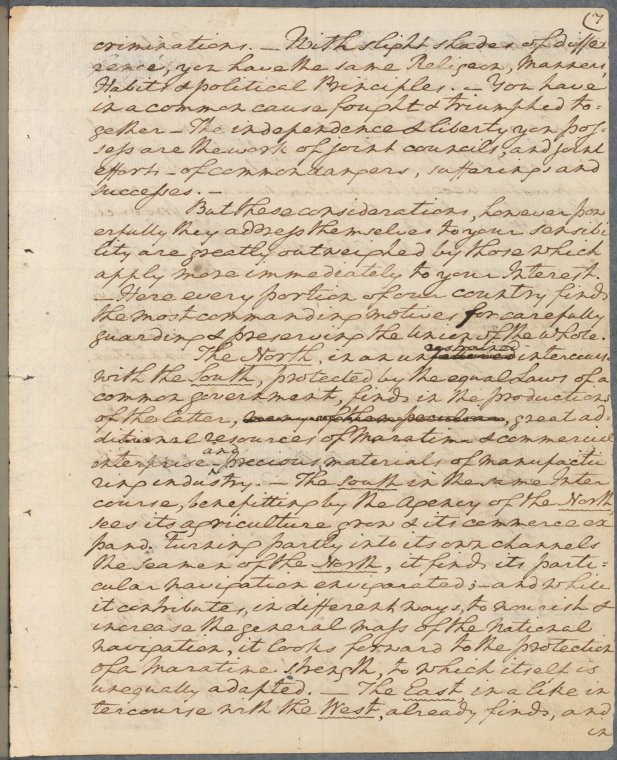 (7
criminations. – With slight shades of diffe-
rence, you have the same Religeon, Manners,
Habits & political Principles. – You have
in a common cause fought & triumphed to=
gether – The independence & liberty you pos-
sess are the work of joint councils, and joint
efforts – of common dangers, sufferings and
successes. –
But these considerations, however pow
erfully they address themselves to your sensibi
lity are greatly outweighed by those which
apply more immediately to your Interest.
– Here every portion of our country finds
the most commanding motives for carefully
guarding & preserving the Union of the whole.
restrained
The North, in an un intercourse
with the South, protected by the equal Laws of a
common government, finds in the productions
of the latter, many of them peculiar, great ad-
ditional resources of Maratime & commercial
and
enterprise precious materials of manufactu
ring industry. – The South in the same Inter
course, benefitting by the Agency of the North,
sees its agriculture grow & its commerce ex
pand. Turning partly into its own channels
the seamen of the North, it finds its parti=
cular navigation envigorated; – and while
it contributes, in different ways, to nourish &
increase the general mass of the National
navigation, it looks forward to the protection
of a Maratime strength, to which itself is
unequally adapted. – The East, in a like in
tercourse with the West, already finds, and
in